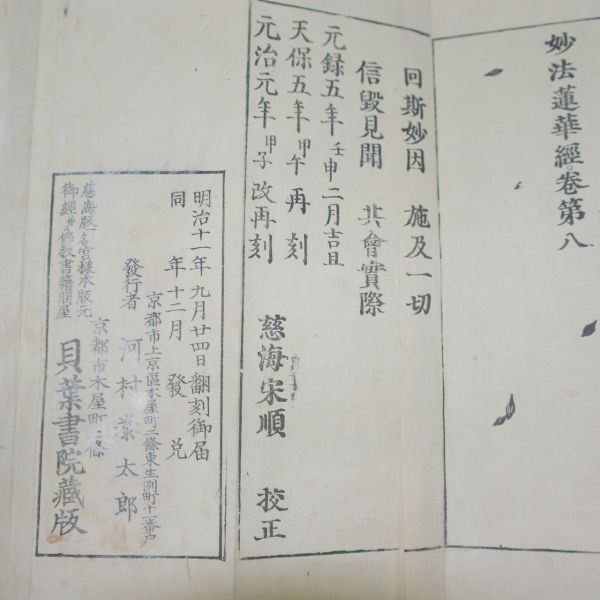 妙法蓮華經卷第八
回斯妙因 施及一切
信毀見聞 共會實際
元録五年壬申二月吉旦
天保五年甲午再刻
元治元年甲子改再刻
慈海宋順 校正
明治十一年九月廿四日翻刻御届
同 年十二月 發兌
京都市上京區木屋町二條東生洲町十一番戸
發行者 河村 太郎
京都市木屋町二條
貝葉書院藏版
慈海版一名宮様本版元
御經并佛教書籍問屋